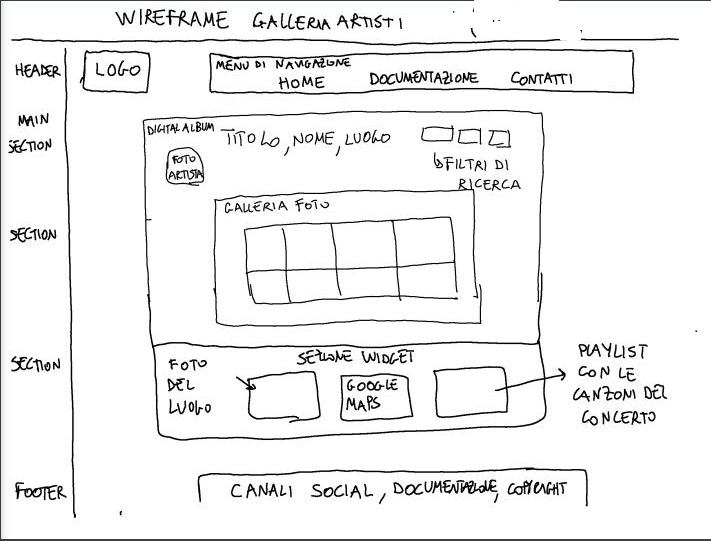 WIREFRAME GALLERIA ARTISTI
HEADER
LOGO
MENU DI NAVIGAZIONE
HOME DOCUMENTAZIONE CONTATTI
MAIN
SECTION
DIGITAL ALBUM
TITOLO, NOME, LUOGO
FOTO
ARTISTA
FILTRI DI
RICERCA
SECTION
GALLERIA FOTO
SECTION
SEZIONE WIDGET
FOTO
DEL
LUOGO
GOOGLE
MAPS
PLAYLIST
CON LE
CANZONI DEL
CONCERTO
FOOTER
CANALI SOCIAL, DOCUMENTAZIONE, COPYRIGHT